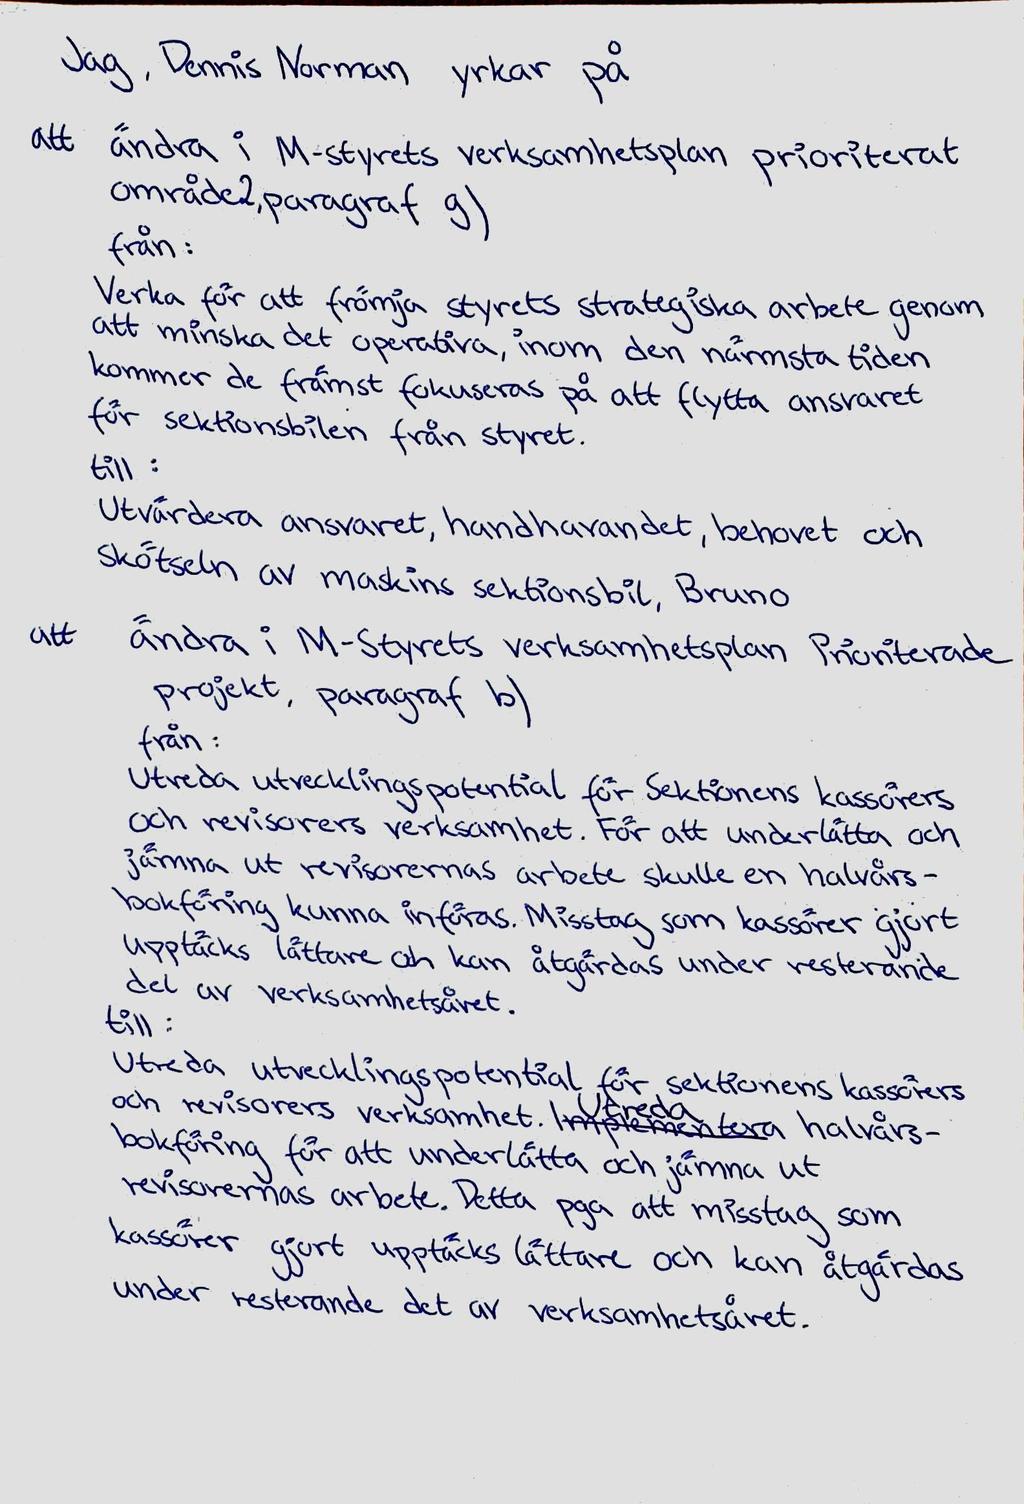 Jag, Dennis Norman yrkar på
att ändra i M-styrets verksamhetsplan prioriterat
område 2, paragraf g)
från:
Verka för att främja styrets strategiska arbete genom
att minska det operativa, inom den närmsta tiden
kommer de främst fokuseras på att flytta ansvaret
för sektionsbilen från styret.
till:
Utvärdera ansvaret, handhavandet, behovet och
skötseln av maskins sektionsbil, Bruno
att ändra i M-Styrets verksamhetsplan Prioriterade
projekt, paragraf b)
från:
Utreda utvecklingspotential för Sektionens kassörers
och revisorers verksamhet. För att underlätta och
jämna ut revisorernas arbete skulle en halvårs-
bokföring kunna införas. Misstag som kassörer gjort
upptäcks lättare och kan åtgärdas under resterande
del av verksamhetsåret.
till:
Utreda utvecklingspotential för sektionens kassörers
och revisorers verksamhet. Implementera Utreda halvårs-
bokföring för att underlätta och jämna ut
revisorernas arbete. Detta pga att misstag som
kassörer gjort upptäcks lättare och kan åtgärdas
under resterande det av verksamhetsåret.